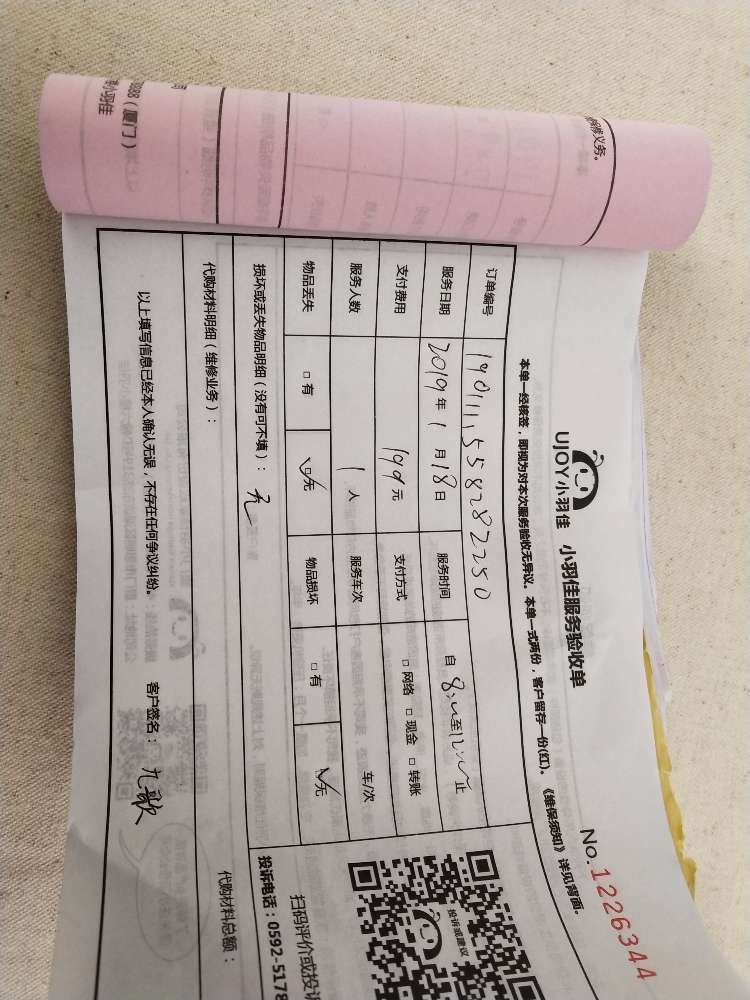 修义务。
（厦门）
小羽佳
UJOY小羽佳 小羽佳服务验收单
No.1226344
本单一经核签，即视为对本次服务验收无异议。本单一式两份，客户留存一份(红)。《维保须知》详见背面。
订单编号 190111558282250
服务日期 2019年1月18日 服务时间 自8:00至12:00止
支付费用 199元 支付方式 □网络 □现金 □转账
服务人数 1人 服务车次 车/次
物品丢失 □有 ☑无 物品损坏 □有 ☑无
损坏或丢失物品明细（没有可不填）：无
代购材料明细（维修业务）：
代购材料总额：
以上填写信息已经本人确认无误，不存在任何争议纠纷。 客户签名：九歌
投诉或建议
扫码评价或投诉
投诉电话：0592-5178